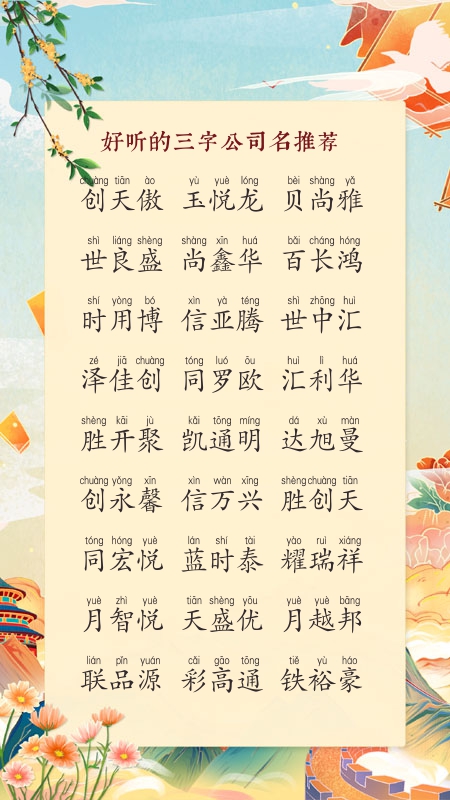 好听的三字公司名推荐
chuàng tiān ào yù yuè lóng bèi shàng yǎ
创天傲 玉悦龙 贝尚雅
shì liáng shèng shàng xīn huá bǎi cháng hóng
世良盛 尚鑫华 百长鸿
shí yòng bó xìn yà téng shì zhōng huì
时用博 信亚腾 世中汇
zé jiā chuàng tóng luó ōu huì lì huá
泽佳创 同罗欧 汇利华
shèng kāi jù kǎi tōng míng dá xù màn
胜开聚 凯通明 达旭曼
chuàng yǒng xīn xìn wàn xīng shèng chuàng tiān
创永馨 信万兴 胜创天
tóng hóng yuè lán shí tài yào ruì xiáng
同宏悦 蓝时泰 耀瑞祥
yuè zhì yuè tiān shèng yōu yuè yuè bāng
月智悦 天盛优 月越邦
lián pǐn yuán cǎi gāo tōng tiě yù háo
联品源 彩高通 铁裕豪